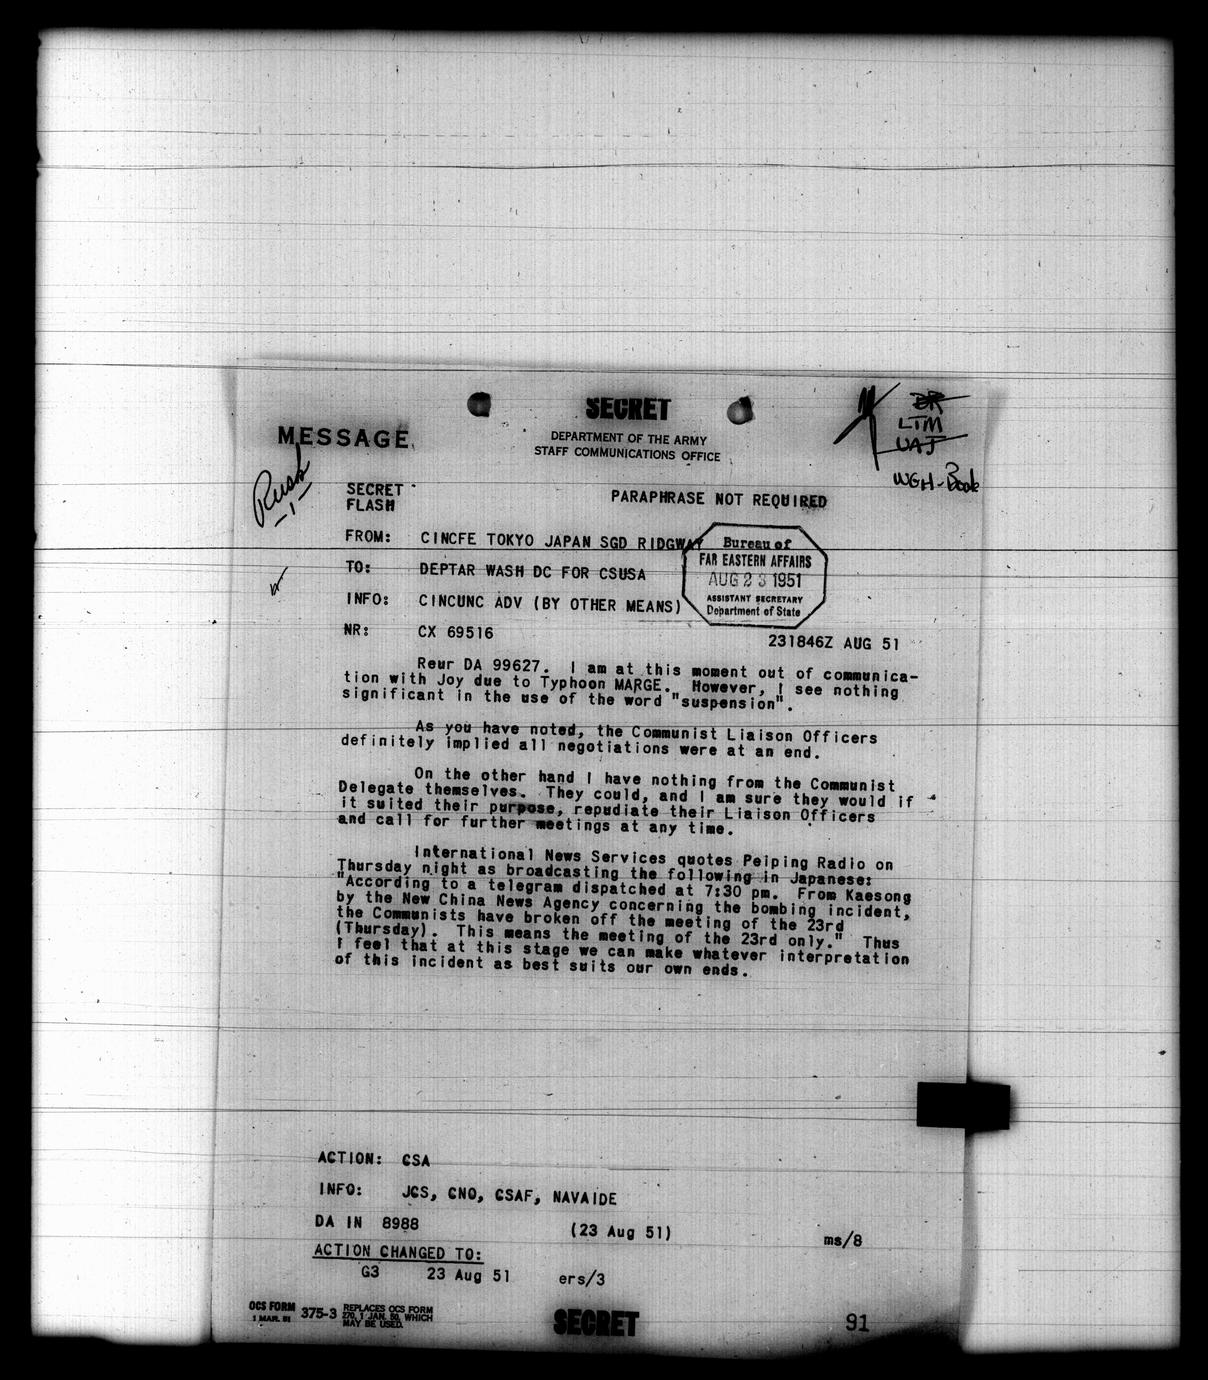 SECRET
MESSAGE
DEPARTMENT OF THE ARMY
STAFF COMMUNICATIONS OFFICE
LTM
UAJ
WGH-Book
Rush
SECRET
FLASH
PARAPHRASE NOT REQUIRED
FROM: CINCFE TOKYO JAPAN SGD RIDGWAY
TO: DEPTAR WASH DC FOR CSUSA
INFO: CINCUNC ADV (BY OTHER MEANS)
Bureau of
FAR EASTERN AFFAIRS
AUG 23 1951
ASSISTANT SECRETARY
Department of State
NR: CX 69516
231846Z AUG 51
Reur DA 99627. I am at this moment out of communica-
tion with Joy due to Typhoon MARGE. However, I see nothing
significant in the use of the word "suspension".
As you have noted, the Communist Liaison Officers
definitely implied all negotiations were at an end.
On the other hand I have nothing from the Communist
Delegate themselves. They could, and I am sure they would if
it suited their purpose, repudiate their Liaison Officers
and call for further meetings at any time.
International News Services quotes Peiping Radio on
Thursday night as broadcasting the following in Japanese:
"According to a telegram dispatched at 7:30 pm. From Kaesong
by the New China News Agency concerning the bombing incident,
the Communists have broken off the meeting of the 23rd
(Thursday). This means the meeting of the 23rd only." Thus
I feel that at this stage we can make whatever interpretation
of this incident as best suits our own ends.
ACTION: CSA
INFO: JCS, CNO, CSAF, NAVAIDE
DA IN 8988 (23 Aug 51) ms/8
ACTION CHANGED TO:
G3 23 Aug 51 ers/3
OCS FORM 375-3 REPLACES OCS FORM
1 MAR. 51 270, 1 JAN. 50, WHICH
MAY BE USED.
SECRET
91